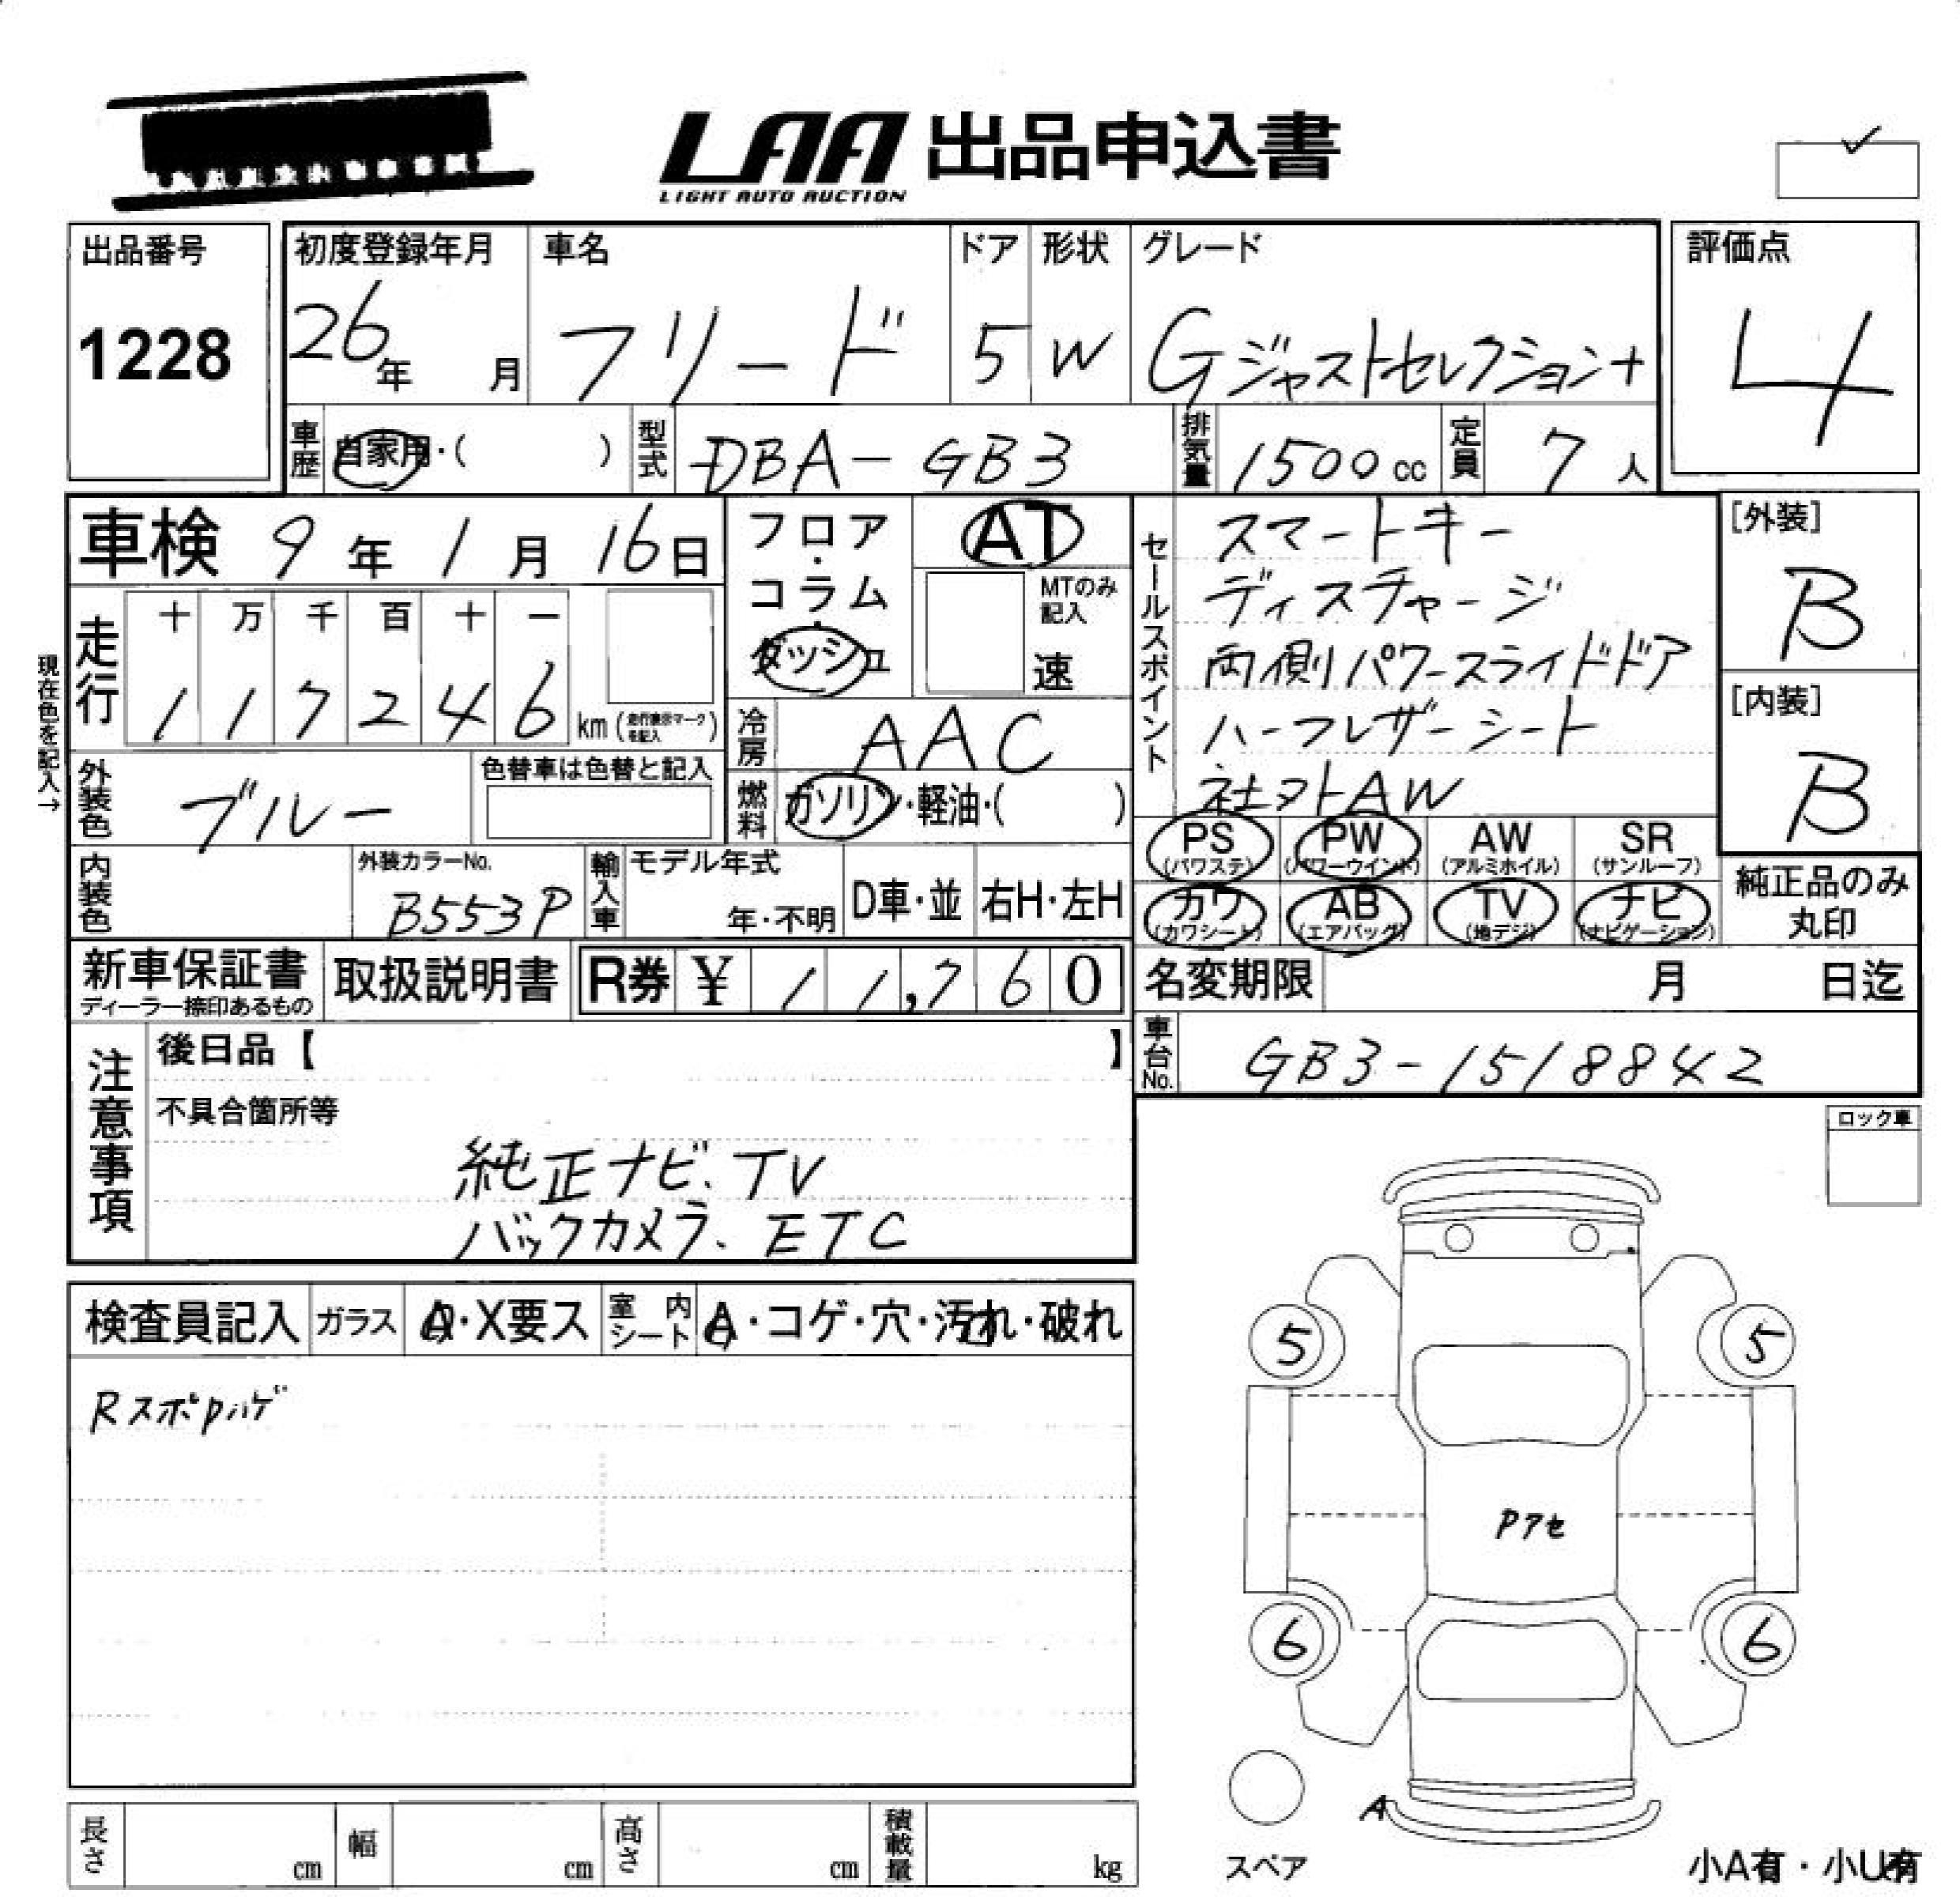 LAA 出品申込書
LIGHT AUTO AUCTION
出品番号
1228
初度登録年月
26年 月
車名
フリード
ドア
5
形状
W
グレード
Gジャストセレクション+
評価点
4
車歴 自家用・( )
型式 DBA-GB3
排気量 1500cc
定員 7人
車検 9年1月16日
フロア・コラム・ダッシュ
AT
MTのみ記入
速
現在色を記入→
走行
十 万 千 百 十 一
1 1 7 2 4 6 km (走行表示マークを記入)
冷房 AAC
燃料 ガソリン・軽油・( )
外装色 ブルー
色替車は色替と記入
内装色
外装カラーNo.
B553P
輸入車
モデル年式
年・不明
D車・並
右H・左H
セールスポイント
スマートキー
ディスチャージ
両側パワースライドドア
ハーフレザーシート
社外AW
[外装]
B
[内装]
B
PS (パワステ)
PW (パワーウインド)
AW (アルミホイル)
SR (サンルーフ)
カワ (カワシート)
AB (エアバッグ)
TV (地デジ)
ナビ (ナビゲーション)
純正品のみ丸印
新車保証書
ディーラー捺印あるもの
取扱説明書
R券 ¥ 11,760
名変期限 月 日迄
車台No. GB3-1518842
注意事項
後日品【 】
不具合箇所等
純正ナビ、TV
バックカメラ、ETC
ロック車
検査員記入
ガラス A・X要ス
室内シート A・コゲ・穴・汚れ・破れ
RスポPハゲ
5
5
Pアセ
6
6
A
スペア
小A有・小U有
長さ cm
幅 cm
高さ cm
積載量 kg